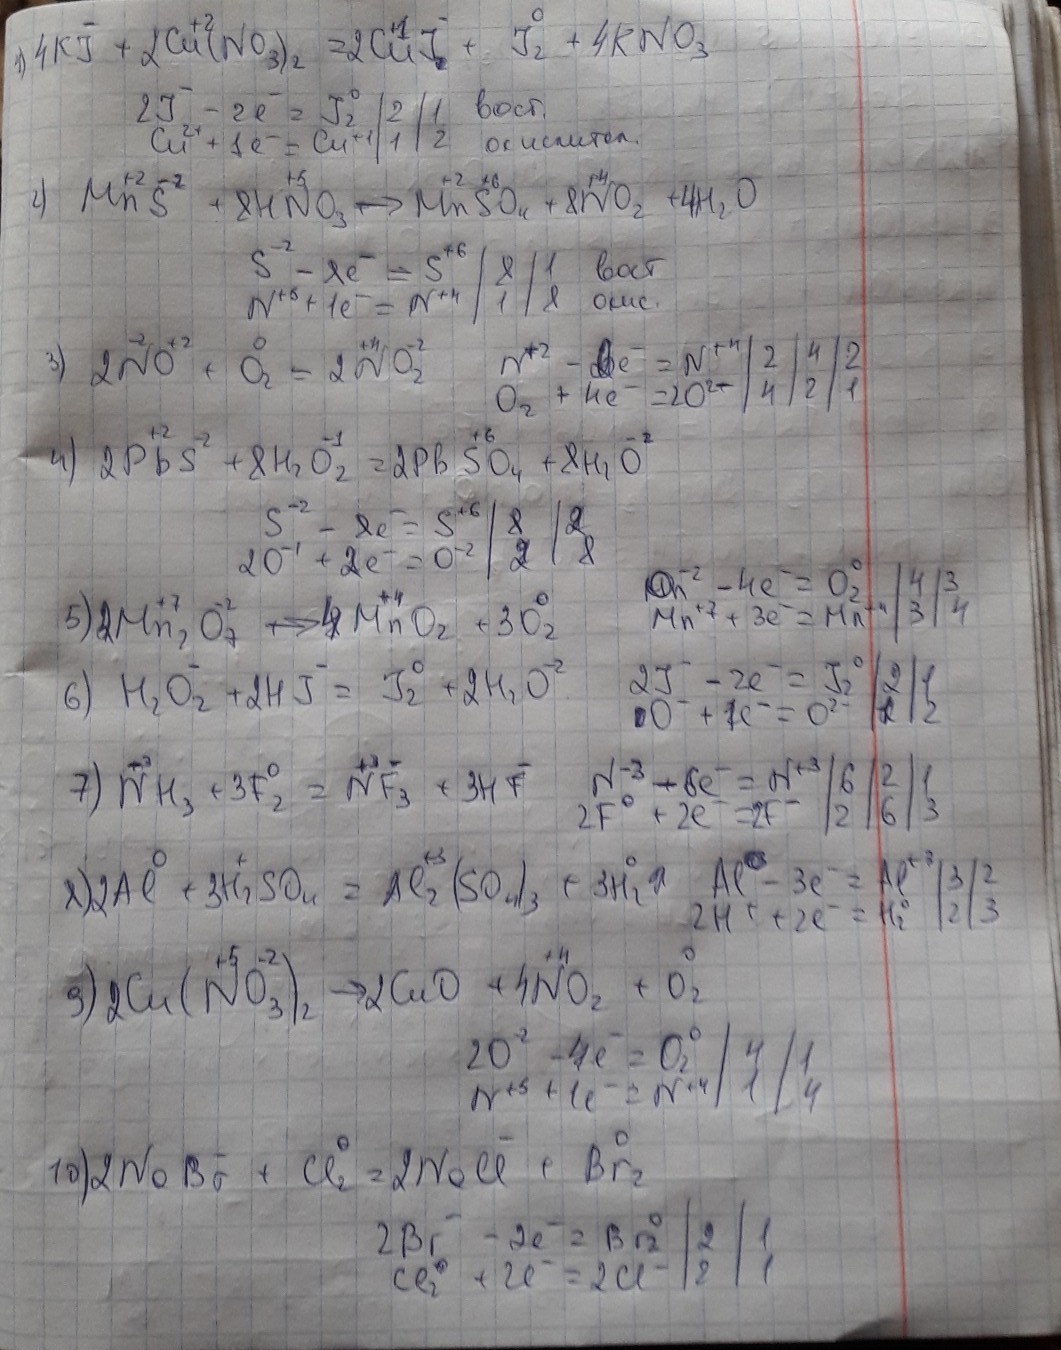 1) 4KJ⁻ + 2Cu⁺²(NO₃)₂ = 2Cu⁺¹J⁻ + J₂⁰ + 4KNO₃
2J⁻ - 2e⁻ = J₂⁰ | 2 | 1 вост.
Cu²⁺ + 1e⁻ = Cu⁺¹ | 1 | 2 окислител.
2) Mn⁺²S⁻² + 8HN⁺⁵O₃ → Mn⁺²S⁺⁶O₄ + 8N⁺⁴O₂ + 4H₂O
S⁻² - 8e⁻ = S⁺⁶ | 8 | 1 вост
N⁺⁵ + 1e⁻ = N⁺⁴ | 1 | 8 окис.
3) 2N⁻²O⁺² + O₂⁰ = 2N⁺⁴O₂⁻² N⁺² - 2e⁻ = N⁺⁴ | 2 | 4 | 2
O₂ + 4e⁻ = 2O²⁻ | 4 | 2 | 1
4) 2Pb⁺²S⁻² + 8H₂O₂⁻¹ = 2PbS⁺⁶O₄ + 8H₂O⁻²
S⁻² - 8e⁻ = S⁺⁶ | 8 | 2
2O⁻¹ + 2e⁻ = O⁻² | 2 | 8
5) 2Mn₂⁺⁷O₇⁻² → 4Mn⁺⁴O₂ + 3O₂⁰ ⁻² - 4e⁻ = O₂⁰ | 4 | 3
Mn⁺⁷ + 3e⁻ = Mn⁺⁴ | 3 | 4
6) H₂O₂⁻ + 2HJ⁻ = J₂⁰ + 2H₂O⁻² 2J⁻ - 2e⁻ = J₂⁰ | 2 | 1
O⁻ + 1e⁻ = O²⁻ | 1 | 2
7) N⁻³H₃ + 3F₂⁰ = N⁺³F₃⁻ + 3HF⁻ N⁻³ - 6e⁻ = N⁺³ | 6 | 2 | 1
2F⁰ + 2e⁻ = 2F⁻ | 2 | 6 | 3
8) 2Al⁰ + 3H₂⁺SO₄ = Al₂⁺³(SO₄)₃ + 3H₂⁰ Al⁰ - 3e⁻ = Al⁺³ | 3 | 2
2H⁺ + 2e⁻ = H₂⁰ | 2 | 3
9) 2Cu(N⁺⁵O₃⁻²)₂ → 2CuO + 4N⁺⁴O₂ + O₂⁰
2O⁻² - 4e⁻ = O₂⁰ | 4 | 1
N⁺⁵ + 1e⁻ = N⁺⁴ | 1 | 4
10) 2NaBr⁻ + Cl₂⁰ = 2NaCl⁻ + Br₂⁰
2Br⁻ - 2e⁻ = Br₂⁰ | 2 | 1
Cl₂⁰ + 2e⁻ = 2Cl⁻ | 2 | 1